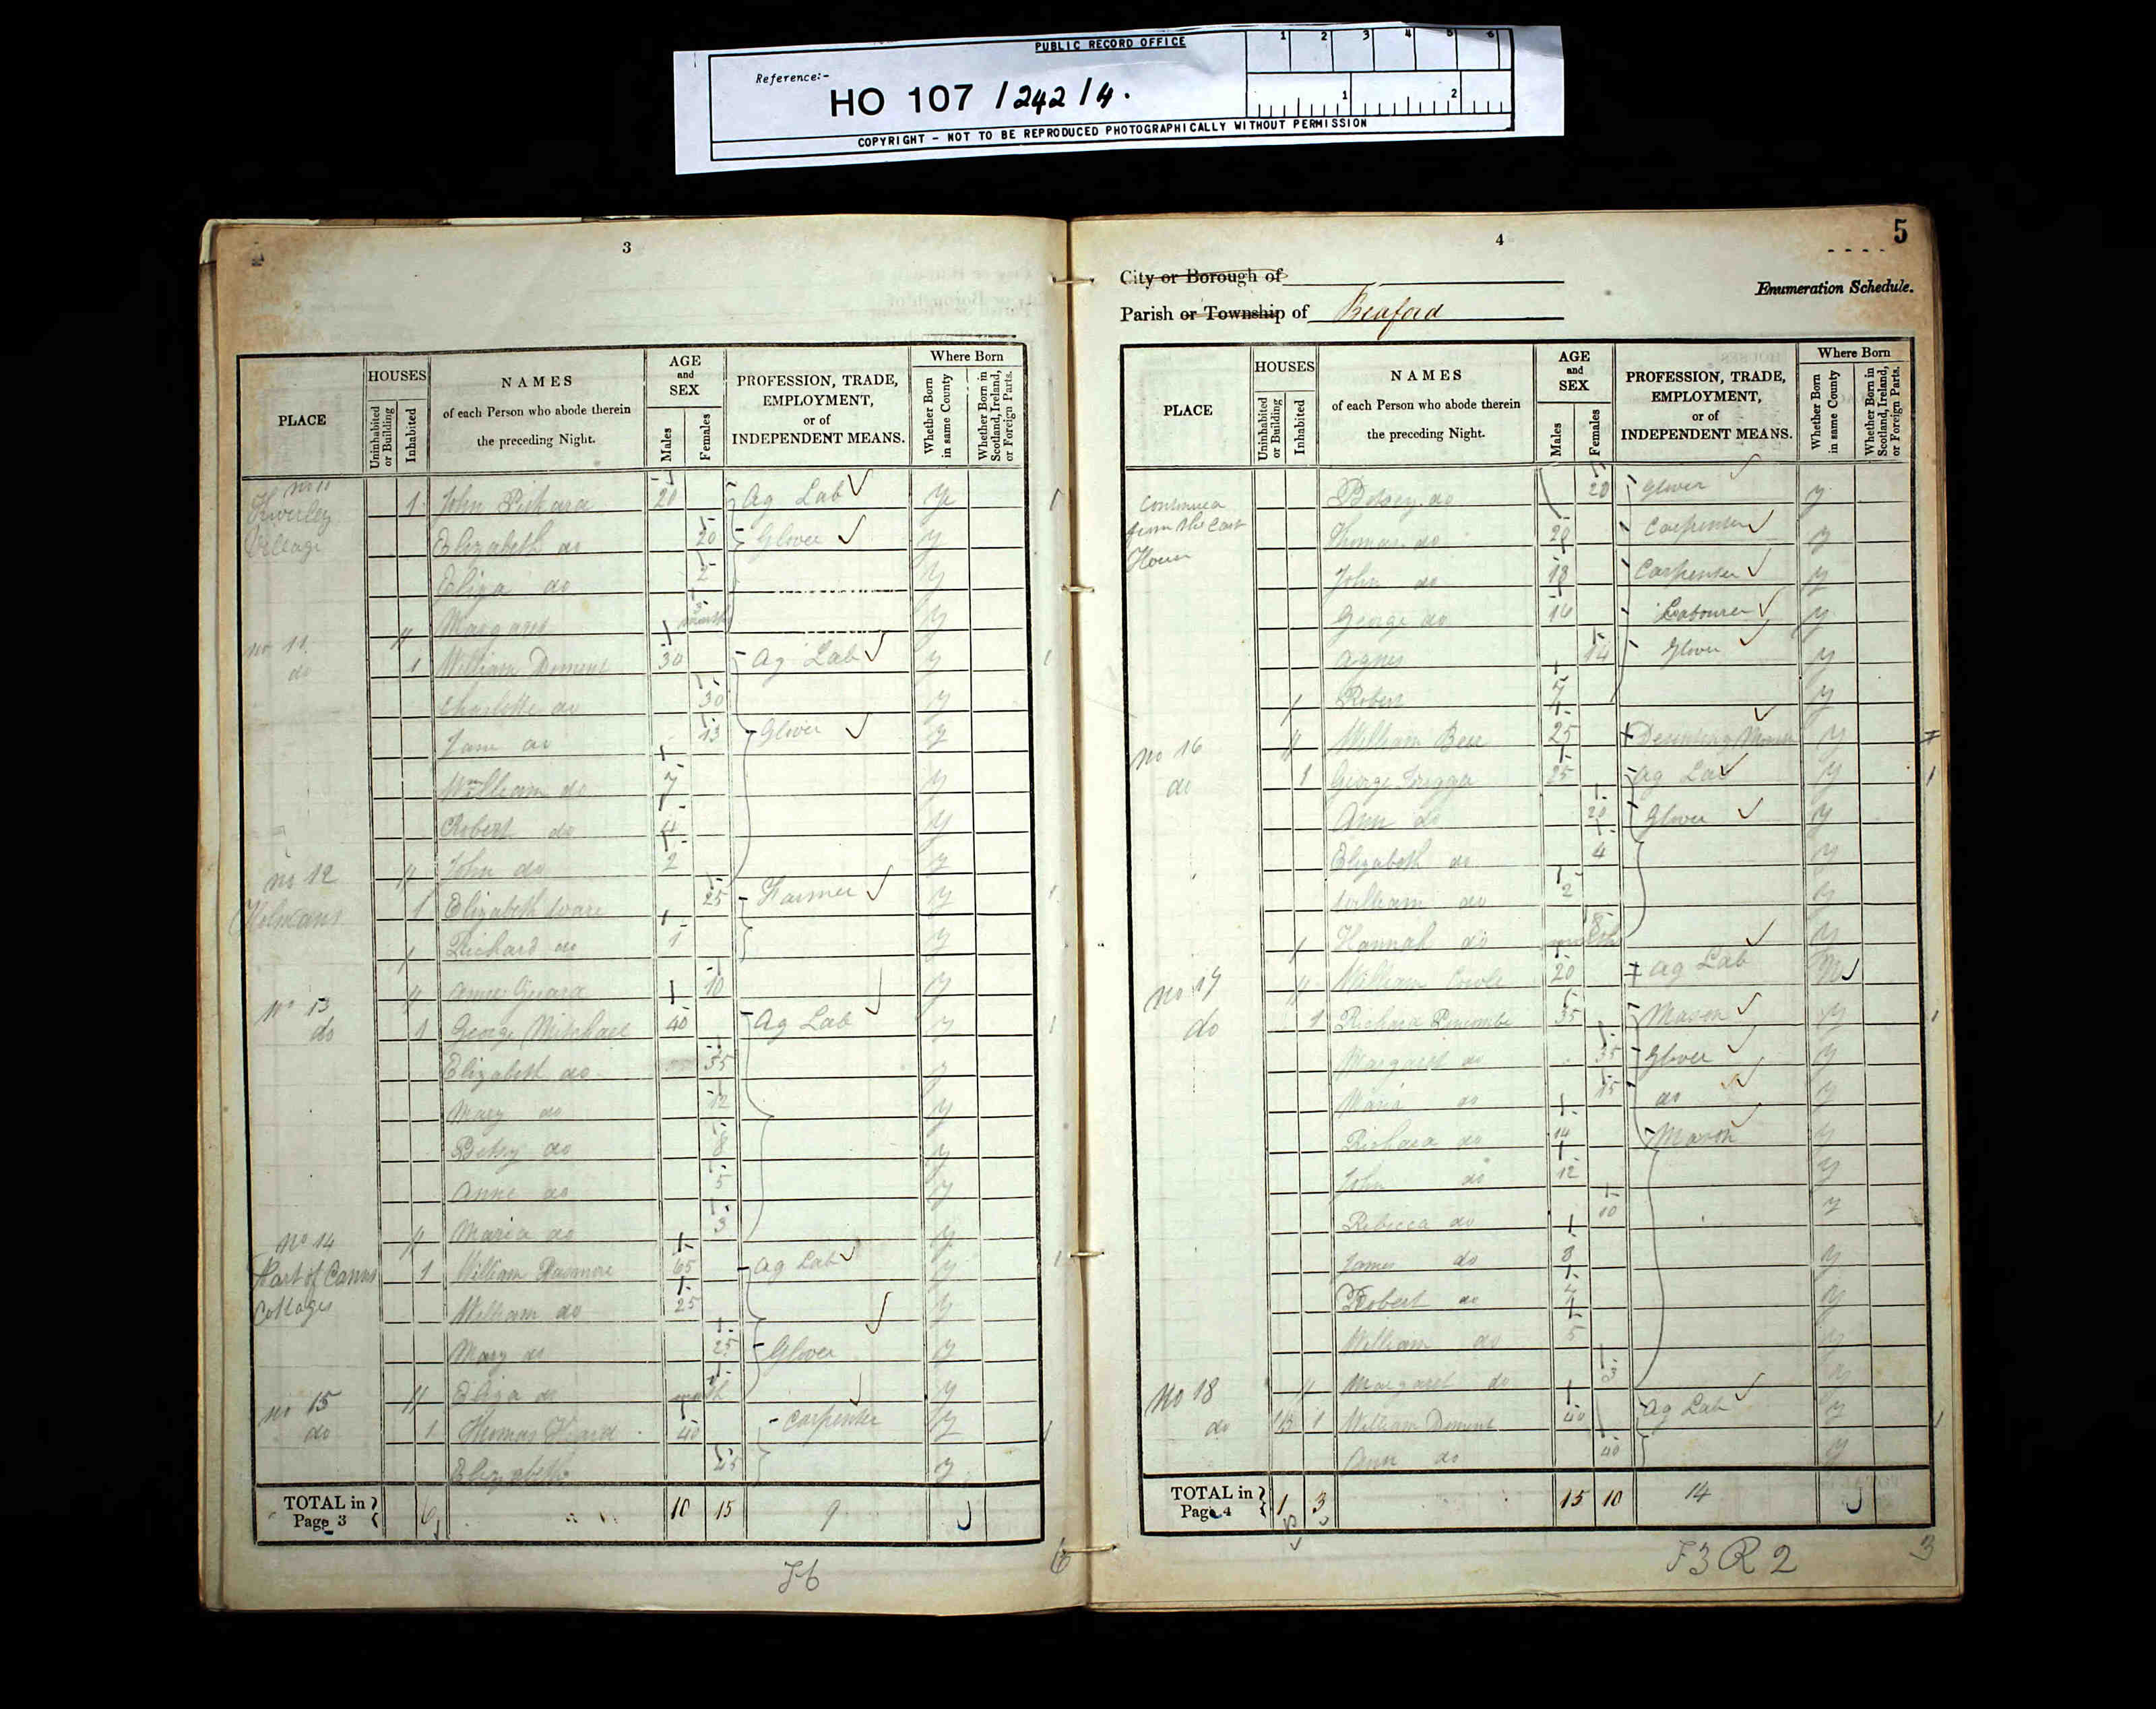 PUBLIC RECORD OFFICE
Reference:-
HO 107 / 242 / 4.
1 2 3 4 5 6
1 2
COPYRIGHT - NOT TO BE REPRODUCED PHOTOGRAPHICALLY WITHOUT PERMISSION
3
PLACE
HOUSES
Uninhabited or Building
Inhabited
NAMES
of each Person who abode therein
the preceding Night.
AGE
and
SEX
Males
Females
PROFESSION, TRADE,
EMPLOYMENT,
or of
INDEPENDENT MEANS.
Where Born
Whether Born in same County
Whether Born in Scotland, Ireland, or Foreign Parts.
Village 1 John 20 Ag Lab
Elizabeth do 20 Glover y
Eliza do 2 y
Margaret 3 months y
no 11 do 1 William Dement 30 Ag Lab y
Charlotte do 30 y
Jane do 13 Glover y
William do 7 y
Robert do 4 y
no 12 John do 2 y
1 Elizabeth Ware 25 Farmer y
Richard do 1 y
Guard 10 y
no 13 do 1 George Mitchael 40 Ag Lab y
Elizabeth do 35 y
Mary do 12 y
Betsy do 8 y
Anne do 5 y
Maria do 3 y
No 14
Part of
Cottages
1 William 65 Ag Lab y
William do 25 y
Mary do 25 Glover y
Eliza do month y
no 15 do 1 Thomas 40 Carpenter y
Elizabeth 45 y
TOTAL in
Page 3
6 10 15 9
6
4
5
City or Borough of
Parish or Township of Beaford
Enumeration Schedule.
PLACE
HOUSES
Uninhabited or Building
Inhabited
NAMES
of each Person who abode therein
the preceding Night.
AGE
and
SEX
Males
Females
PROFESSION, TRADE,
EMPLOYMENT,
or of
INDEPENDENT MEANS.
Where Born
Whether Born in same County
Whether Born in Scotland, Ireland, or Foreign Parts.
Continued
from the Last
House
Betsey do 20 Glover y
Thomas do 20 Carpenter y
John do 18 Carpenter y
George do 14 Labourer y
Agnes 14 Glover y
Robert 7 y
William 25 y
no 16 do 1 George 25 Ag Lab y
Ann do 20 Glover y
Elizabeth do 4 y
William do 2 y
Hannah do y
William 20 Ag Lab
no 17 do 1 Richard 35 Mason y
Margaret do 35 Glover y
Maria do 15 do y
Richard do 14 Mason y
John do 12 y
Rebecca do 10 y
James do 8 y
Robert do y
William do 5 y
Margaret do 3 y
No 18 do 1B 1 William Dement 40 Ag Lab y
Ann do 40 y
TOTAL in
Page 4
1 3 15 10 14
F3 R 2
3